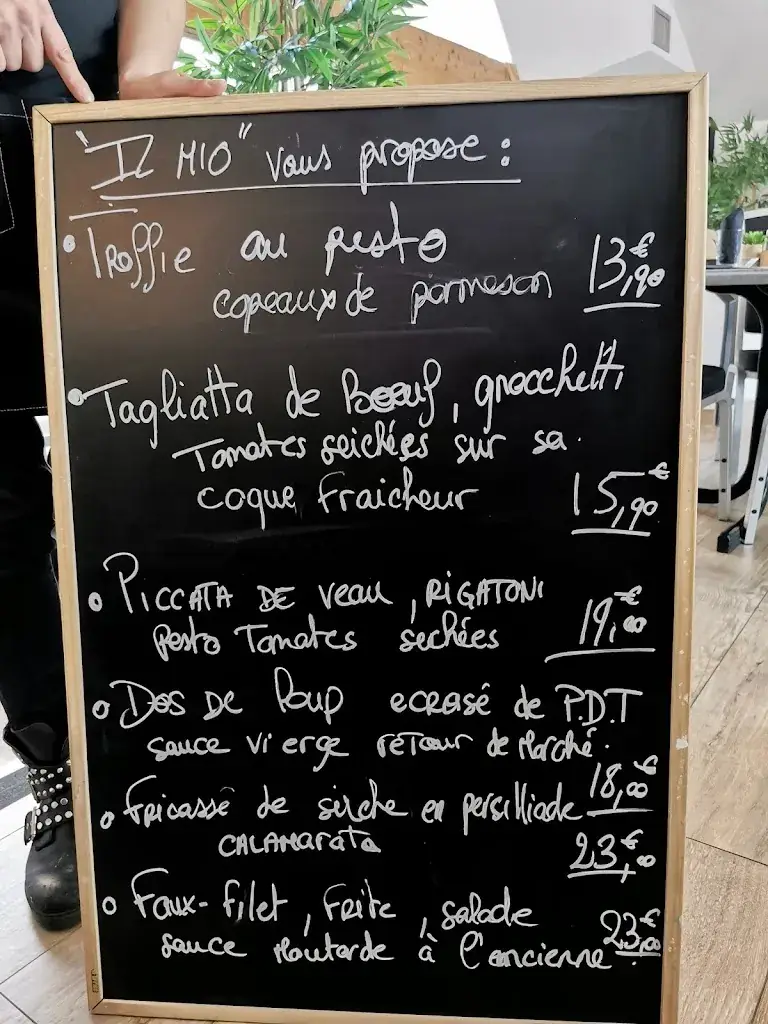 "IL MIO" vous propose :
• Troffie au pesto
copeaux de parmesan 13,90€
• Tagliatta de Boeuf, gnocchetti
Tomates seichées sur sa
coque fraicheur 15,90€
• PICCATA DE veau, RIGATONI
pesto Tomates sechées 19,00€
• Dos DE loup ecrasé de P.D.T
sauce vierge retour de Marché. 18,00€
• Fricassé de seiche en persilliade
CALAMARATA 23,00€
• Faux-filet, Frite, salade
sauce Moutarde à l'ancienne. 23,00€